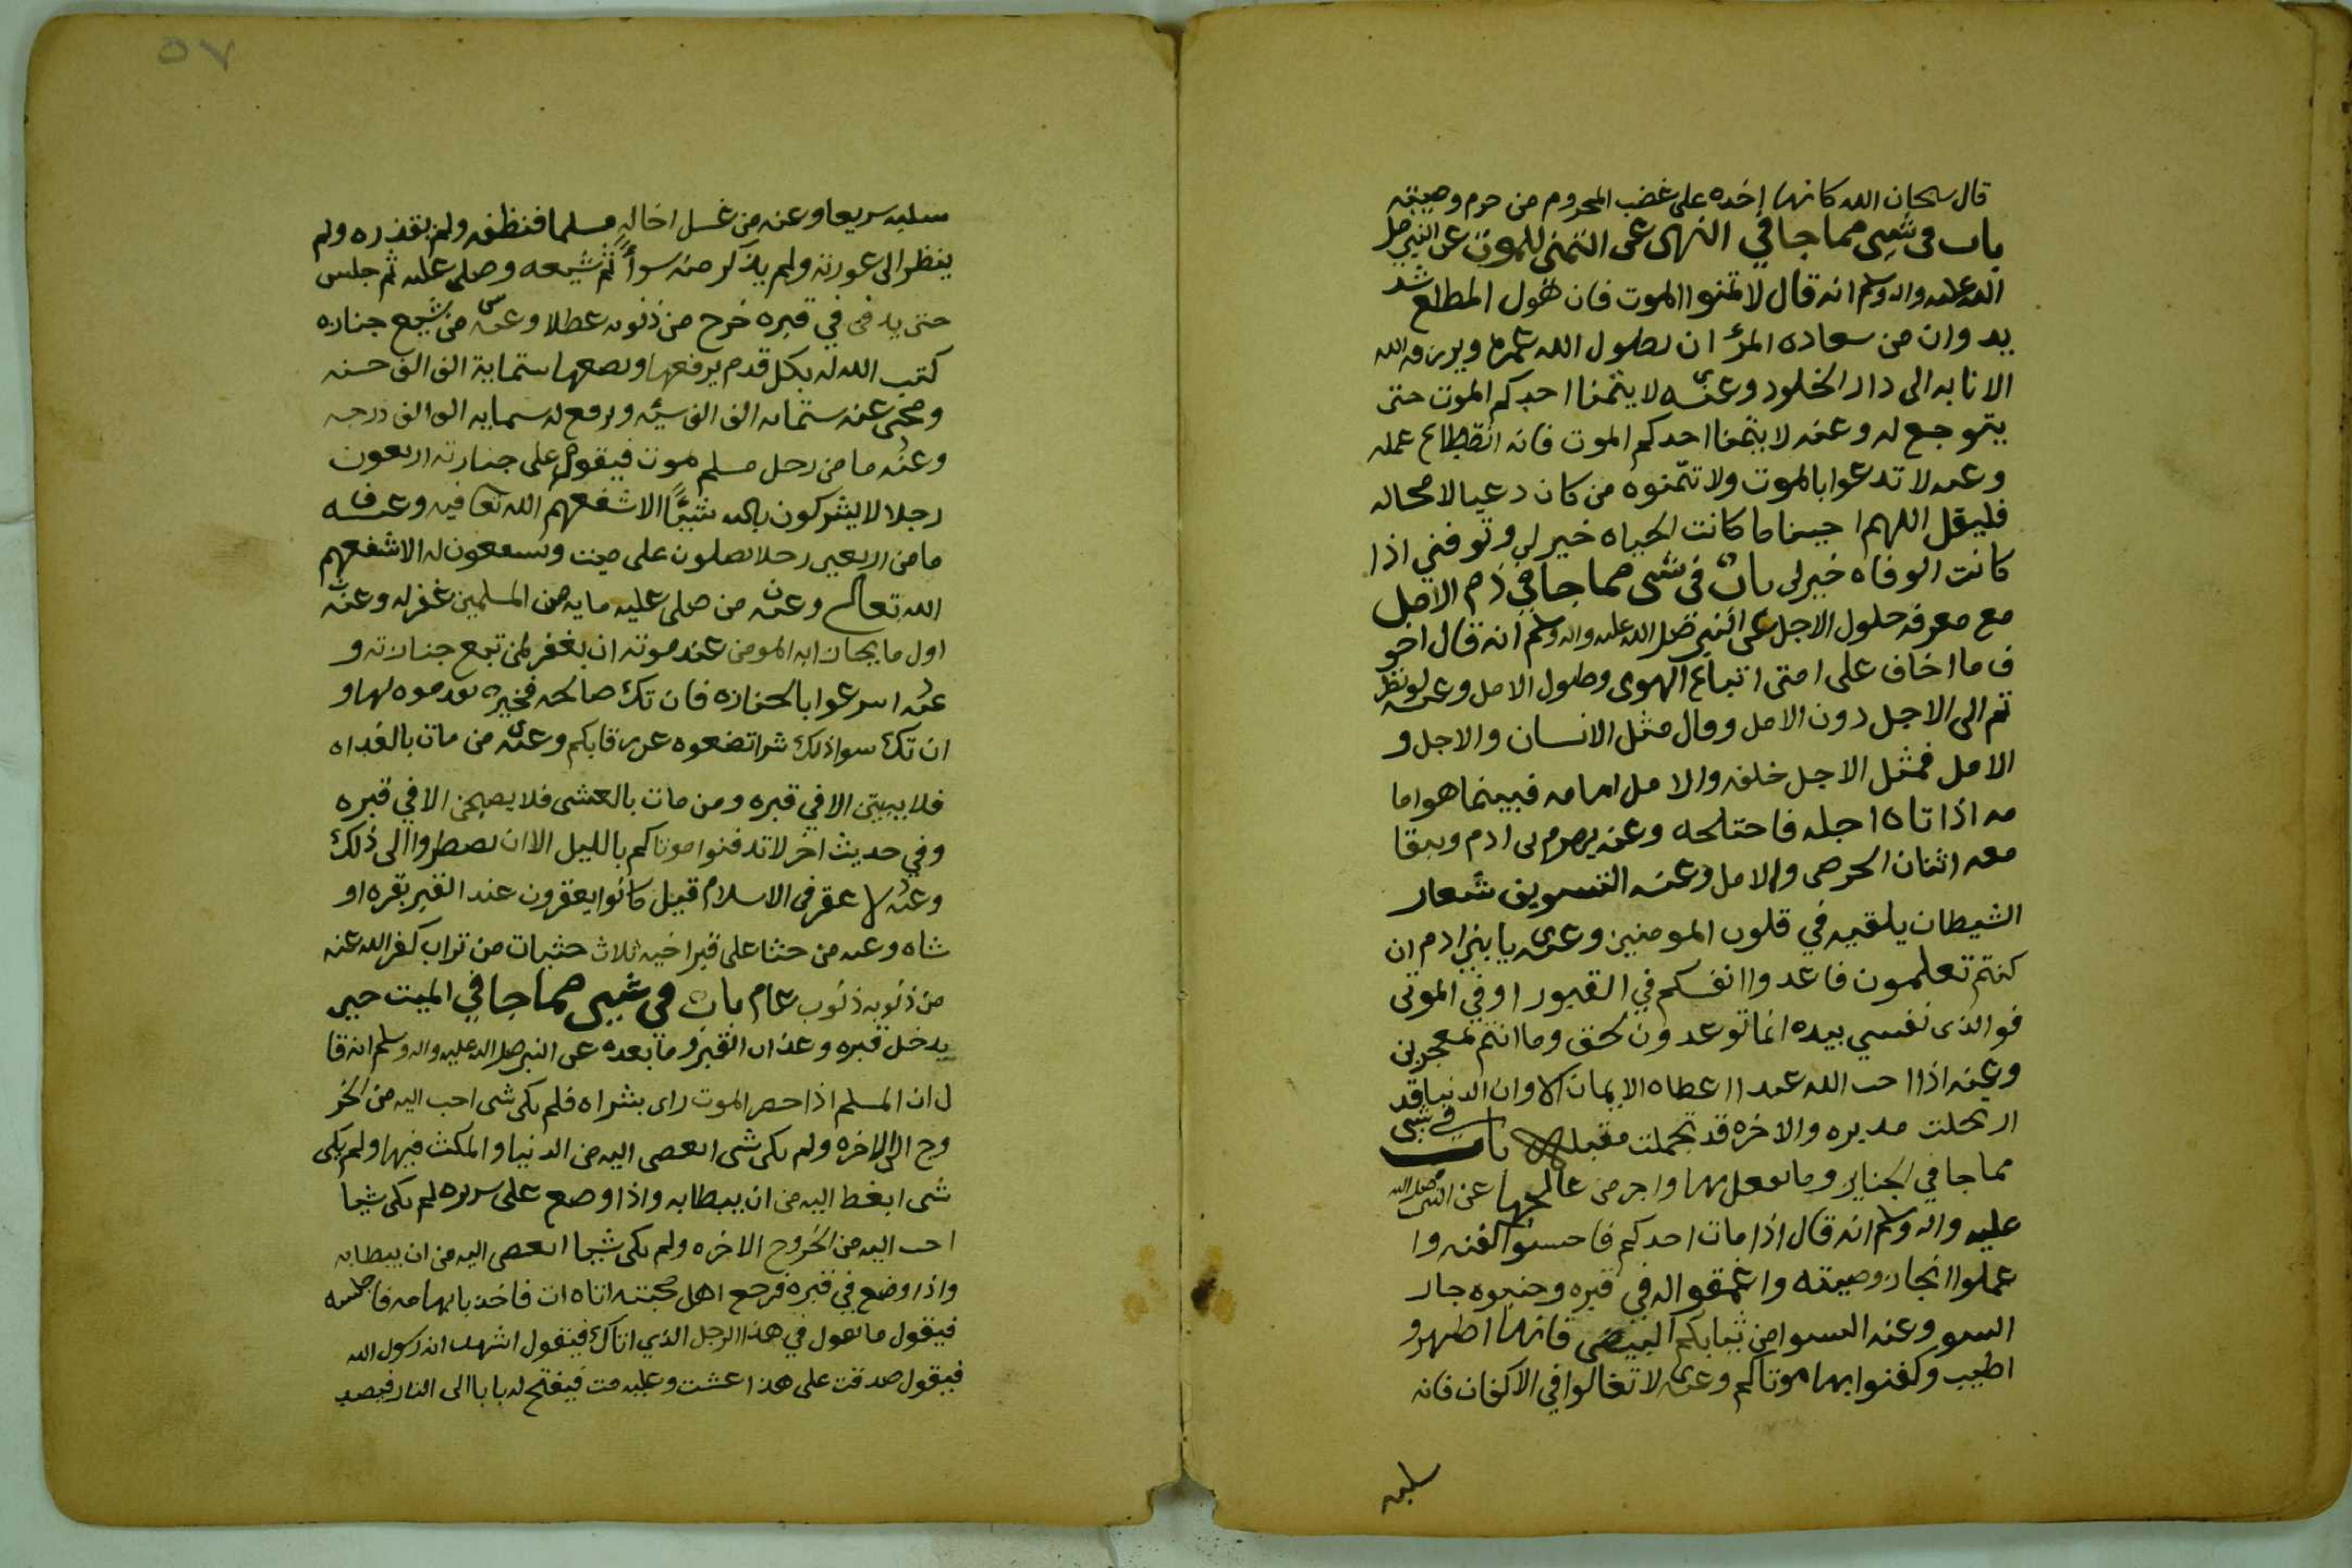 قال سبحان الله كانها اخده على غضب المحروم من حرم وصيته
باب فى شى مما جا في النهى عن التمنى للموت عن النبي صلى
الله عليه واله وسلم انه قال لا تمنوا الموت فان هول المطلع شد
يد وان من سعاده المرء ان يطول الله عمره ويرزقه الله
الانابه الى دار الخلود وعنه لا يتمنا احدكم الموت حتى
يتوجع له وعنه لا يتمنا احدكم الموت فانه انقطاع عمله
وعنه لا تدعوا بالموت ولا تتمنوه من كان دعيا لا محاله
فليقل اللهم احيينا ما كانت الحياه خير لي وتوفني اذا
كانت الوفاه خير لى باب فى شى مما جا في ذم الامل
مع معرفه حلول الاجل عن النبي صلى الله عليه واله وسلم انه قال اخو
ف ما اخاف على امتى اتباع الهوى وطول الامل وعنه لو نظر
تم الى الاجل دون الامل وقال مثل الانسان والاجل و
الامل فمثل الاجل خلفه والامل امامه فبينما هو اما
مه اذ اتاه اجله فاحتلجه وعنه يهرم بن ادم ويبقا
معه اثنان الحرص والامل وعنه التسويف شعار
الشيطان يلقيه في قلوب المومنين وعنه يا بني ادم ان
كنتم تعلمون فاعدوا انفسكم في القبور او في الموتى
فوالذى نفسي بيده انما توعدون لحق وما انتم بمعجزين
وعنه اذا احب الله عبدا اعطاه الايمان الا وان الدنيا قد
ارتحلت مدبره والاخره قد تجملت مقبله باب فى شى
مما جا في الجنايز وما يفعل بها واجر من عالجها عن النبي صلى الله
عليه واله وسلم انه قال اذا مات احدكم فاحسنوا كفنه وا
عملوا انجاز وصيته واعمقوا له في قبره وجنبوه جار
السو وعنه البسوا من ثيابكم البيض فانها اطهر و
اطيب وكفنوا بها موتاكم وعنه لا تغالوا في الاكفان فانه
سلبه
٥٧
سلبه سريعا وعنه من غسل اخا له مسلما فنظفه ولم يقذره ولم
ينظر الى عورته ولم يذكر منه سوأً ثم شيعه وصلى عليه ثم جلس
حتى يدفن في قبره خرج من ذنوبه عطلا وعنه من شيع جنازه
كتب الله له بكل قدم يرفعها ويضعها ستماية الف الف حسنه
ومحى عنه ستمايه الف الف سيئه ورفع له ستمايه الف الف درجه
وعنه ما من رجل مسلم موت فيقوم على جنازته اربعون
رجلا لا يشركون بالله شيئًا الا شفعهم الله تعا فيه وعنه
ما من اربعين رجلا يصلون على ميت ويشفعون له الا شفعهم
الله تعالى وعنه من صلى عليه مايه من المسلمين غفر له وعنه
اول ما يجازا به المومن عند موته ان يغفر لمن تبع جنازته و
عنه اسرعوا بالجنازه فان تك صالحه فخير تقدموه لها و
ان تك سوا ذلك شرا تضعوه عن رقابكم وعنه من مات بالغداه
فلا يبيتن الا في قبره ومن مات بالعشى فلا يصبحن الا في قبره
وفي حديث اخر لا تدفنوا موتاكم بالليل الا ان تضطروا الى ذلك
وعنه لا عقر فى الاسلام قيل كانوا يعقرون عند القبر بقره او
شاه وعنه من حثا على قبر اخيه ثلاث حثيات من تراب كفر الله عنه
من ذنوبه ذنوب عام باب فى شيى مما جا في الميت حين
يدخل قبره وعذاب القبر وما بعده عن النبي صلى الله عليه واله وسلم انه قا
ل ان المسلم اذا حضر الموت راى بشراه فلم يكن شى احب اليه من الخر
وج الى الاخره ولم يكن شى ابغض اليه من الدنيا والمكث فيها ولم يكن
شى ابغظ اليه من ان يبطا به واذا وضع على سريره لم يكن شيا
احب اليه من الخروج الاخره ولم يكن شيا ابغض اليه من ان يبطا به
واذا وضع في قبره فرجع اهل محبته اتاه ات فاخذ بابهامه فاجلسه
فيقول ما تقول في هذا الرجل الذي اتاك فيقول اشهد انه رسول الله
فيقول صدقت على هذا عشت وعليه مت فيفتح له بابا الى النار فيصد